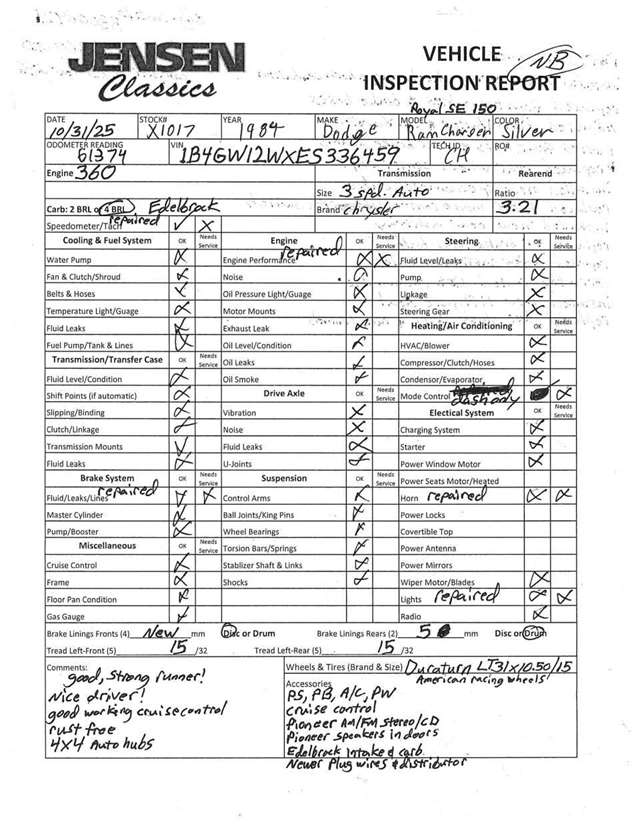 JENSEN
Classics
VEHICLE
INSPECTION REPORT
NB
Royal SE 150
DATE STOCK# YEAR MAKE MODEL COLOR
10/31/25 X1017 1984 Dodge RamCharger Silver
ODOMETER READING VIN TECH ID RO#
61374 1B4GW12WXES336459 CH
Engine 360 Transmission Rearend
Size 3 spd. Auto Ratio
Carb: 2 BRL or 4 BRL Edelbrock Brand Chrysler 3.21
Speedometer/Tach repaired
Cooling & Fuel System OK Needs Service Engine OK Needs Service Steering OK Needs Service
Water Pump Engine Performance repaired Fluid Level/Leaks
Fan & Clutch/Shroud Noise Pump
Belts & Hoses Oil Pressure Light/Guage Linkage
Temperature Light/Guage Motor Mounts Steering Gear
Fluid Leaks Exhaust Leak Heating/Air Conditioning OK Needs Service
Fuel Pump/Tank & Lines Oil Level/Condition HVAC/Blower
Transmission/Transfer Case OK Needs Service Oil Leaks Compressor/Clutch/Hoses
Fluid Level/Condition Oil Smoke Condensor/Evaporator
Shift Points (if automatic) Drive Axle OK Needs Service Mode Control dash only
Slipping/Binding Vibration Electical System OK Needs Service
Clutch/Linkage Noise Charging System
Transmission Mounts Fluid Leaks Starter
Fluid Leaks U-Joints Power Window Motor
Brake System OK Needs Service Suspension OK Needs Service Power Seats Motor/Heated
Fluid/Leaks/Lines repaired Control Arms Horn repaired
Master Cylinder Ball Joints/King Pins Power Locks
Pump/Booster Wheel Bearings Covertible Top
Miscellaneous OK Needs Service Torsion Bars/Springs Power Antenna
Cruise Control Stablizer Shaft & Links Power Mirrors
Frame Shocks Wiper Motor/Blades
Floor Pan Condition Lights repaired
Gas Gauge Radio
Brake Linings Fronts (4) New mm Disc or Drum Brake Linings Rears (2) 5 mm Disc or Drum
Tread Left-Front (5) 15 /32 Tread Left-Rear (5) 15 /32
Comments: Wheels & Tires (Brand & Size) Duraturn LT31x10.50/15
American racing wheels
good, strong runner! Accessories
Nice driver! PS, PB, A/C, PW
good working cruise control cruise control
rust free Pioneer AM/FM stereo/CD
4x4 Auto hubs Pioneer speakers in doors
Edelbrock Intake & carb
Newer Plug wires & distributor